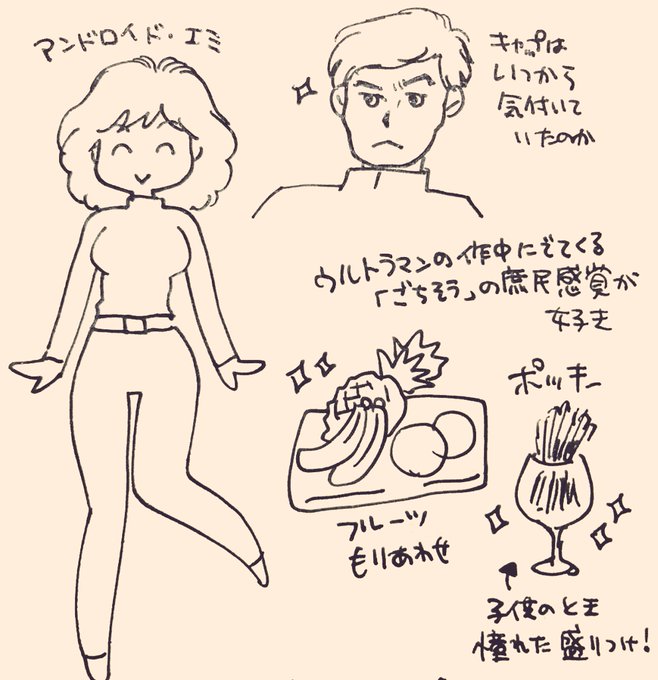 アンドロイド・エミ
キャップは
いつから
気付いて
いたのか
ウルトラマンの作中にでてくる
「ごちそう」の庶民感覚が
好き
ポッキー
フルーツ
もりあわせ
子供のとき
憧れた盛りつけ!